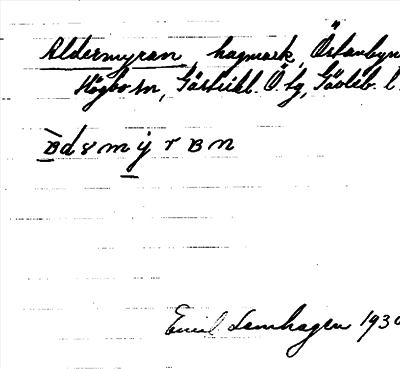 Aldermyran, hagmark, Östanbyn
Högbo sn, Gästrikl. Ö. tg, Gävleb. l
Emil Lemhagen 193